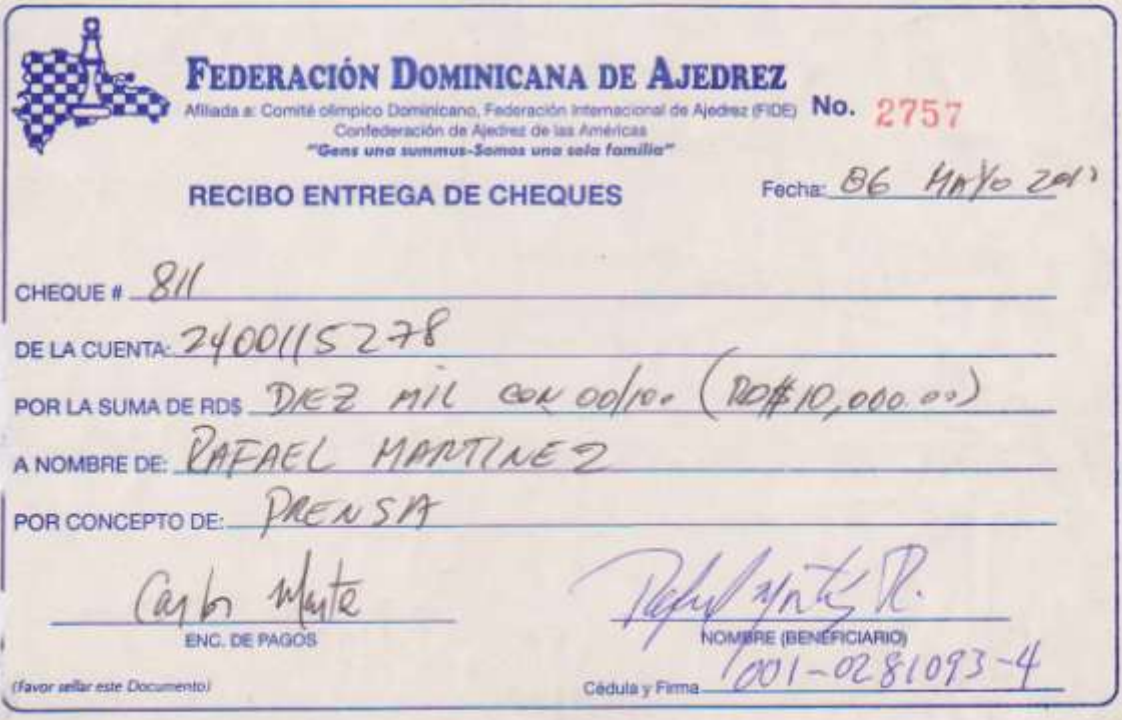 FEDERACIÓN DOMINICANA DE AJEDREZ
Afiliada a: Comité olímpico Dominicano, Federación Internacional de Ajedrez (FIDE)
Confederación de Ajedrez de las Américas
"Gens una summus-Somos una sola familia"
No. 2757
RECIBO ENTREGA DE CHEQUES
Fecha: 06 MAYO
CHEQUE # 811
DE LA CUENTA: 2400115278
POR LA SUMA DE RD$ DIEZ MIL CON 00/100 (RD$10,000.00)
A NOMBRE DE: RAFAEL MARTINEZ
POR CONCEPTO DE: PRENSA
Carlos
ENC. DE PAGOS
Rafael R.
NOMBRE (BENEFICIARIO)
Cédula y Firma 001-0281093-4
(Favor sellar este Documento)